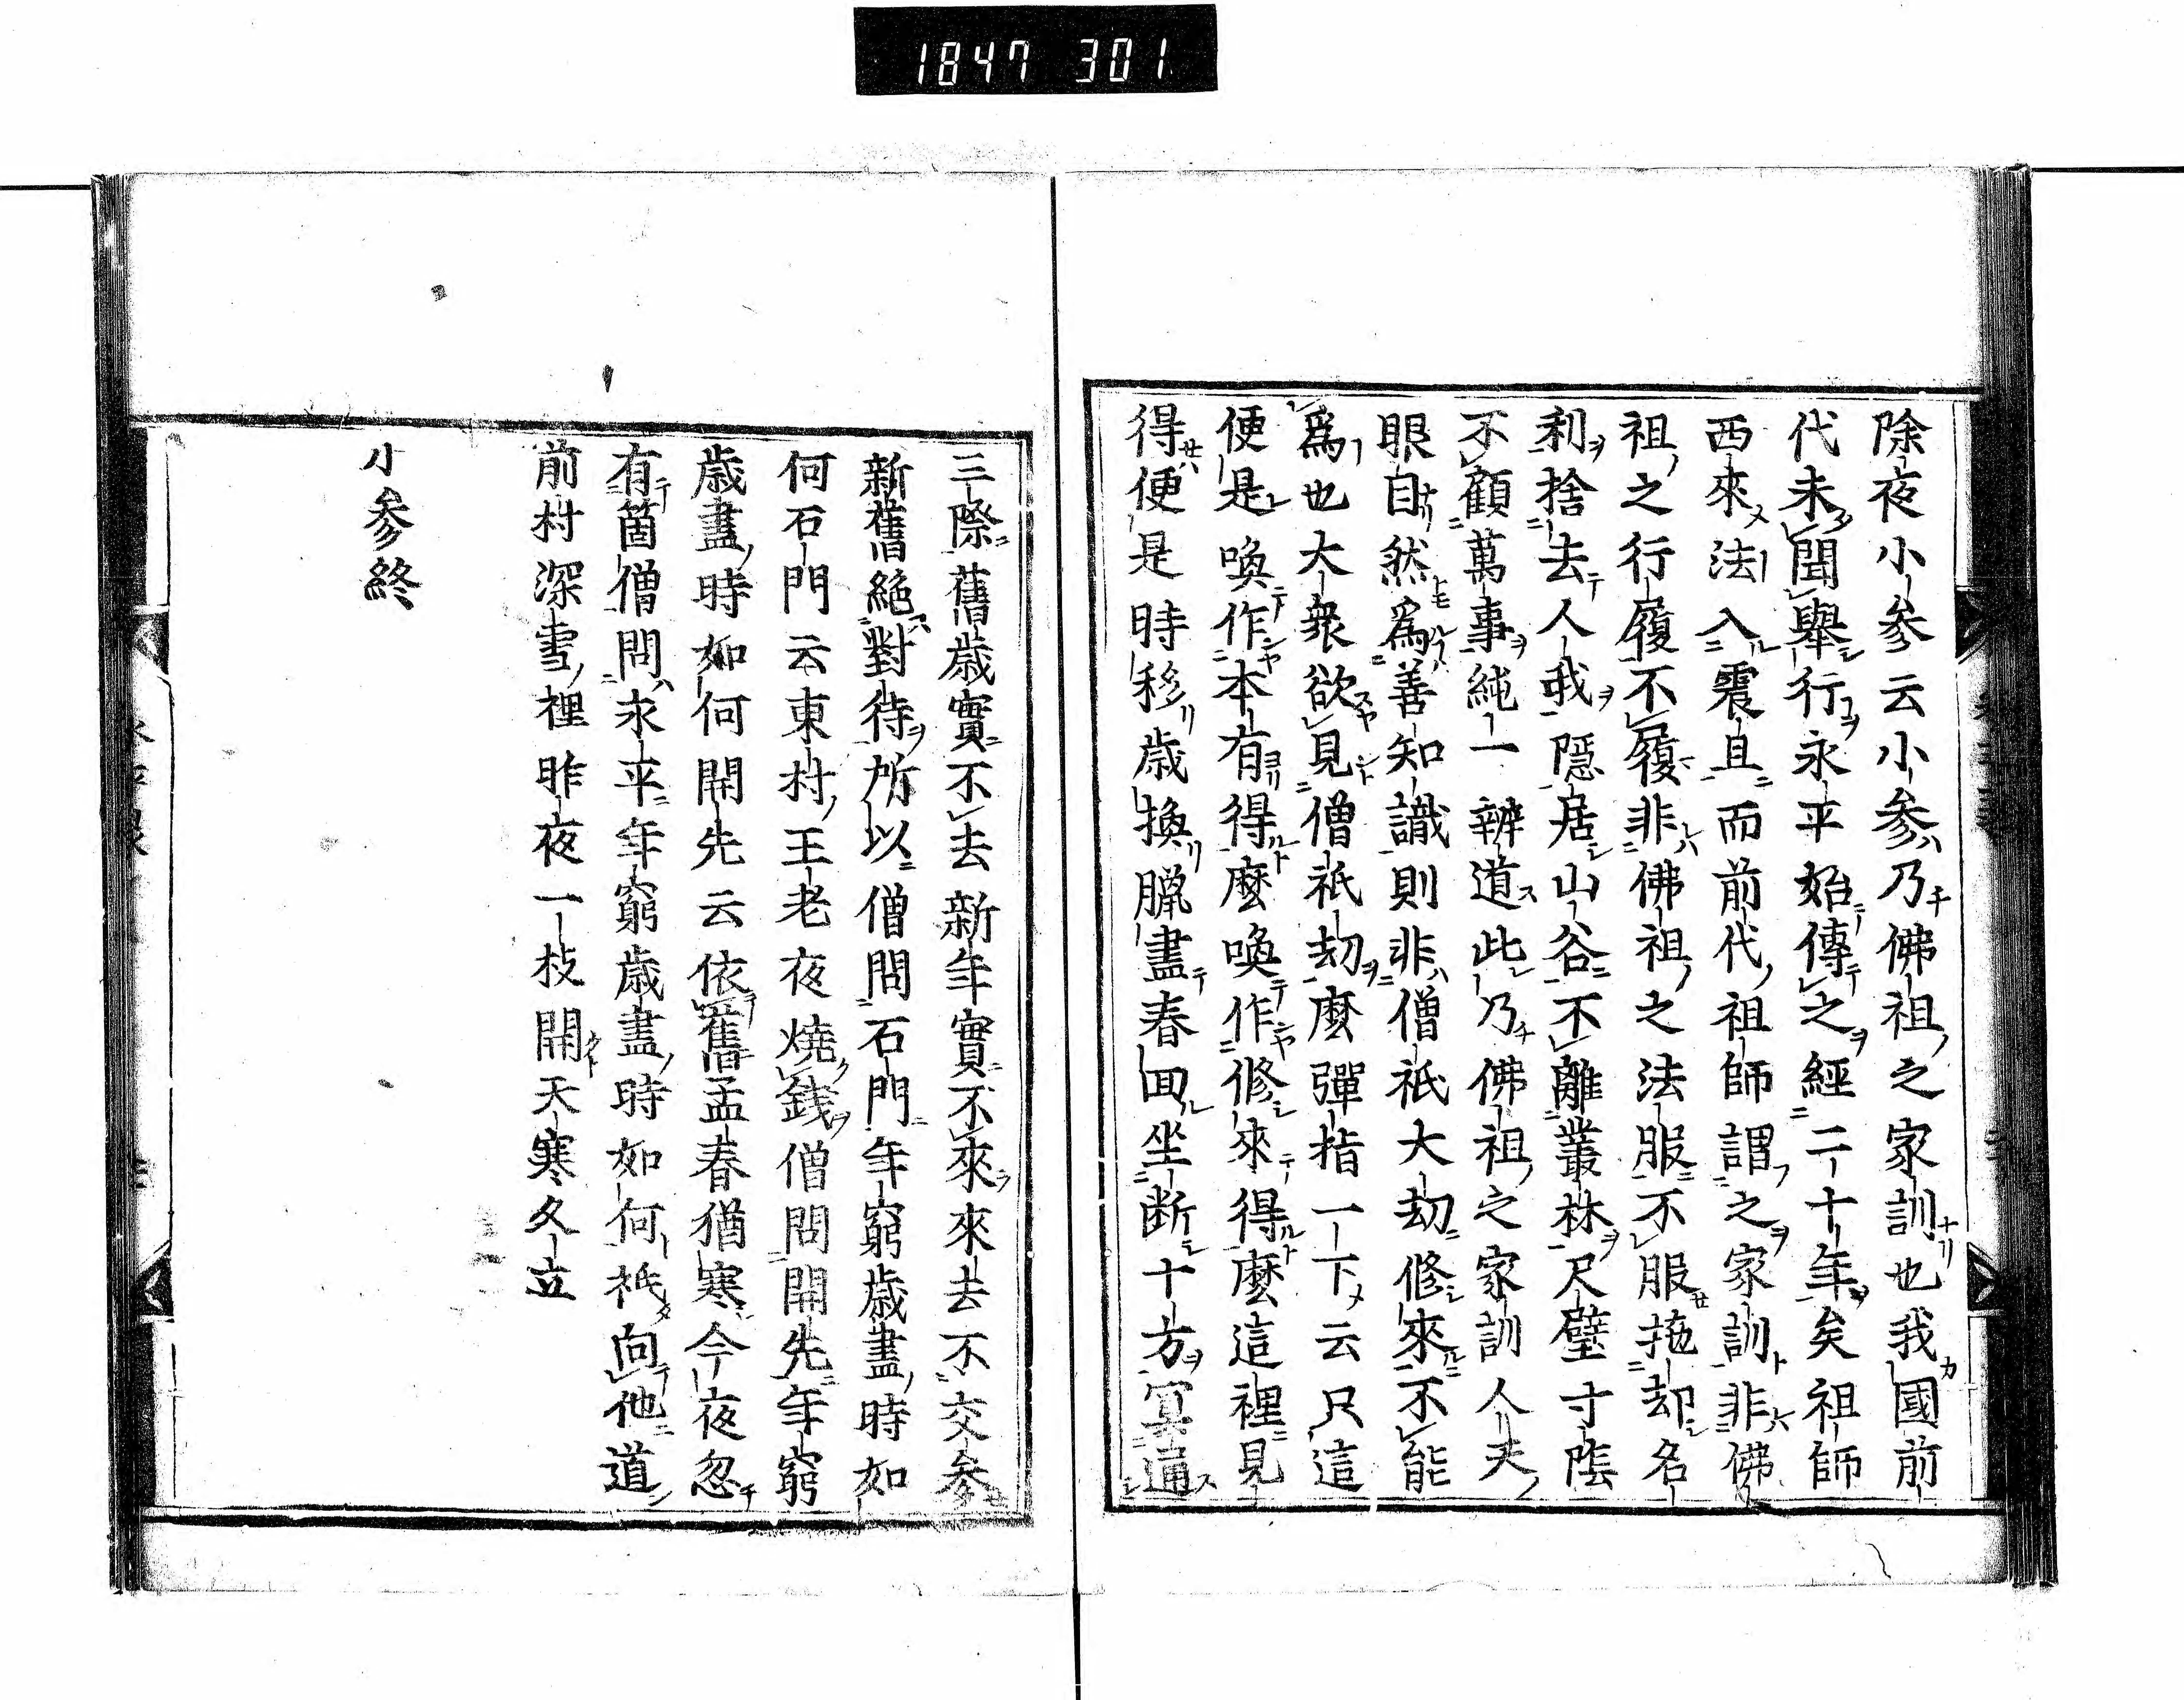 1847 301
除夜小參云小參乃佛祖之家訓也我國前
代未聞擧行永平始傳之經二十年矣祖師
西來法入震旦而前代祖師謂之家訓非佛
祖之行履不履非佛祖之法服不服拖却名
利捨去人我隱居山谷不離叢林尺璧寸陰
不顧萬事純一辨道此乃佛祖之家訓人天
眼目然爲善知識則非僧祇大劫修來不能
爲也大衆欲見僧祇劫麼彈指一下云只這
便是喚作本有得麼喚作修來得麼這裡見
得便是時移歲換臘盡春回坐斷十方冥通
三際舊歲實不去新年實不來來去不交參
新舊絶對待所以僧問石門年窮歲盡時如
何石門云東村王老夜燒錢僧問開先年窮
歲盡時如何開先云依舊孟春猶寒今夜忽
有箇僧問永平年窮歲盡時如何祇向他道
前村深雪裡昨夜一枝開天寒久立
小參終